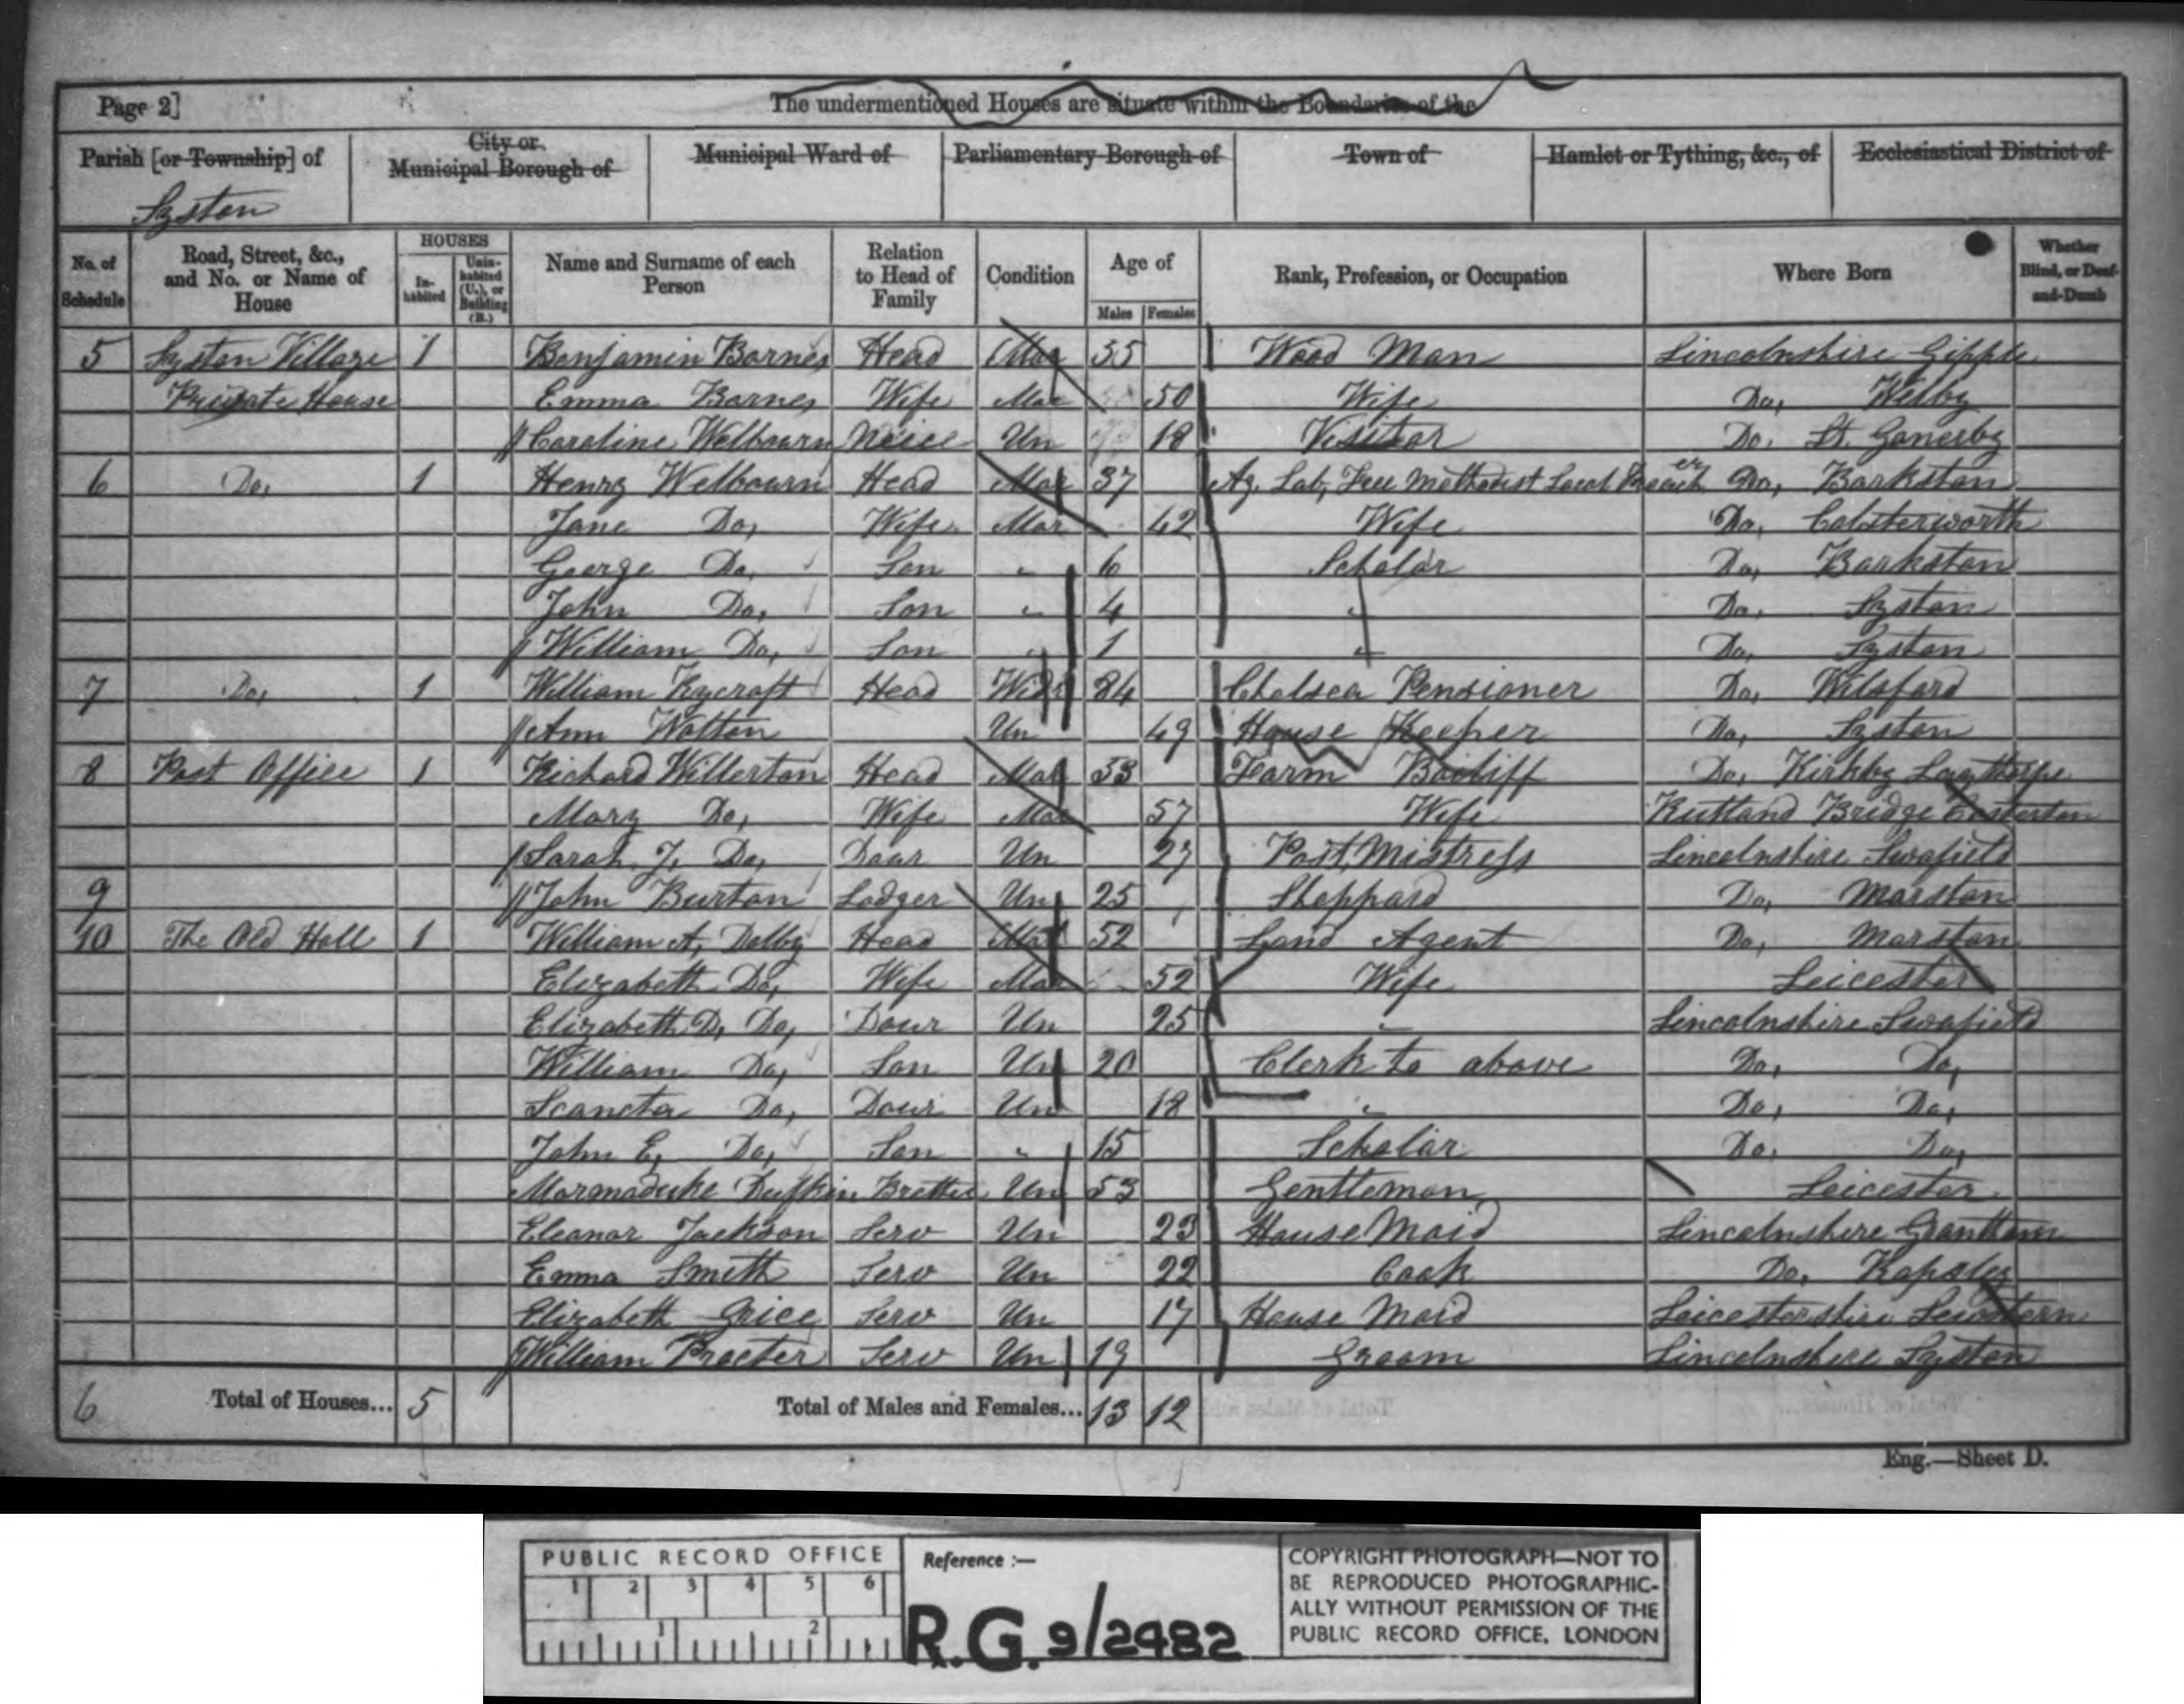 Page 2]
The undermentioned Houses are situate within the Boundaries of the
Parish [or Township] of
City or Municipal Borough of
Municipal Ward of
Parliamentary Borough of
Town of
Hamlet or Tything, &c., of
Ecclesiastical District of
Syston
No. of Schedule
Road, Street, &c., and No. or Name of House
HOUSES
In-habited
Unin-habited (U.), or Building (B.)
Name and Surname of each Person
Relation to Head of Family
Condition
Age of
Males
Females
Rank, Profession, or Occupation
Where Born
Whether Blind, or Deaf-and-Dumb
5 Syston Village 1 Benjamin Barnes Head Mar 55 Wood Man Lincolnshire Gipple
Private House Emma Barnes Wife Mar 50 Wife Do, Welby
Caroline Welbourn Neice Un 18 Visitor Do, Gt. Gonerby
6 Do, 1 Henry Welbourn Head Mar 37 Ag. Lab, Free Methodist Local Preacher Do, Barkston
Jane Do, Wife Mar 42 Wife Do, Colsterworth
George Do, Son " 6 Scholar Do, Barkston
John Do, Son " 4 " Do, Syston
William Do, Son " 1 " Do, Syston
7 Do, 1 William Head Widr 84 Chelsea Pensioner Do, Wilsford
Ann Walton Un 49 House Keeper Do, Syston
8 Post Office 1 Richard Willerton Head Mar 53 Farm Bailiff Do, Kirkby Laythorpe
Mary Do, Wife Mar 57 Wife Rutland Bridge Casterton
Sarah J, Do, Daur Un 27 Post Mistress Lincolnshire Swafield
9 John Burton Lodger Un 25 Sheppard Do, Marston
10 The Old Hall 1 William A, Dolby Head Mar 52 Land Agent Do, Marston
Elizabeth Do, Wife Mar 52 Wife Leicester
Elizabeth D, Do, Daur Un 25 " Lincolnshire Swafield
William Do, Son Un 20 Clerk to above Do, Do,
Do, Daur Un 18 " Do, Do,
John E, Do, Son " 15 Scholar Do, Do,
Marmaduke Un 53 Gentleman Leicester
Eleanor Jackson Serv Un 23 House Maid Lincolnshire Grantham
Emma Smith Serv Un 22 Cook Do, Ropsley
Elizabeth Grice Serv Un 17 House Maid Leicestershire Sewstern
William Procter Serv Un 19 Groom Lincolnshire Syston
6 Total of Houses... 5 Total of Males and Females... 13 12
Eng.—Sheet D.
PUBLIC RECORD OFFICE
1 2 3 4 5 6
1 2
Reference :—
R.G. 9/2482
COPYRIGHT PHOTOGRAPH—NOT TO
BE REPRODUCED PHOTOGRAPHIC-
ALLY WITHOUT PERMISSION OF THE
PUBLIC RECORD OFFICE, LONDON